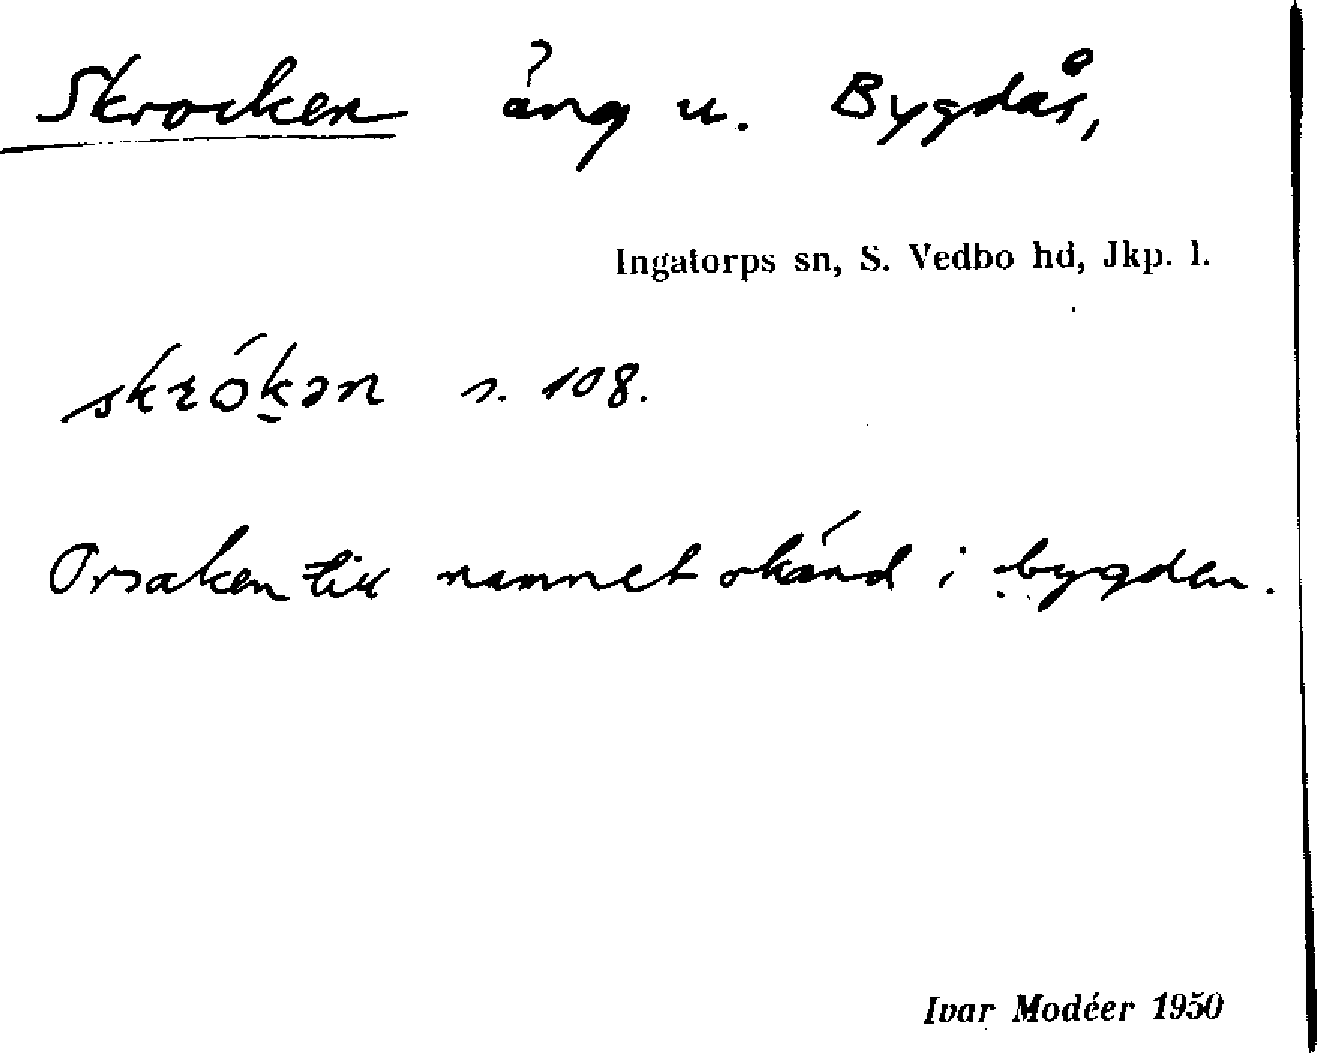 Skrocken äng u. Bygdås,
Ingatorps sn, S. Vedbo hd, Jkp. l.
skrók̠ən s. 108.
Orsaken till namnet okänd i bygden.
Ivar Modéer 1950